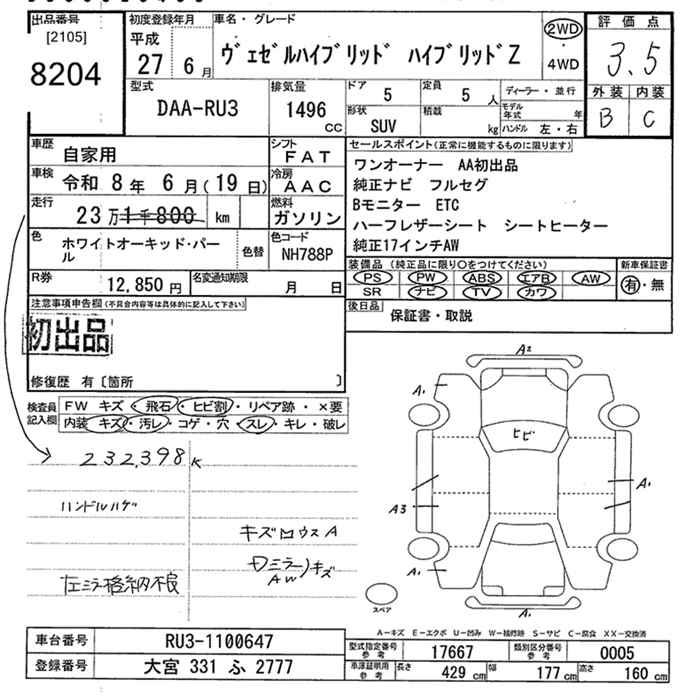 出品番号
[2105]
8204
初度登録年月
平成
27 6月
車名・グレード
ヴェゼルハイブリッド ハイブリッドZ
2WD
・
4WD
評価点
3.5
外装 内装
B C
型式
DAA-RU3
排気量
1496
CC
ドア
5
定員
5 人
形状
SUV
積載
kg
ディーラー・並行
モデル
年式 年
ハンドル 左・右
車歴
自家用
シフト
FAT
車検
令和 8年 6月(19日)
冷房
AAC
走行
23万1千800 km
燃料
ガソリン
色
ホワイトオーキッド・パー
ル
色替
色コード
NH788P
R券
12,850円
名変通知期限
月 日
セールスポイント(正常に機能するものに限ります)
ワンオーナー AA初出品
純正ナビ フルセグ
Bモニター ETC
ハーフレザーシート シートヒーター
純正17インチAW
装備品(純正品に限り○をつけてください)
PS PW ABS エアB AW
SR ナビ TV カワ
新車保証書
有・無
後日品
保証書・取説
注意事項申告欄(不具合内容等は具体的に記入して下さい)
初出品
修復歴 有〔箇所 〕
検査員
記入欄
FW キズ・飛石・ヒビ割・リペア跡・×要
内装 キズ・汚レ・コゲ・穴・スレ・キレ・破レ
232,398K
ハンドルハゲ
キズ ロウス A
ミラー
AW
キズ
左ミラー格納不良
A2
A1
ヒビ
A3
A1
A1
スペア
A-キズ E-エクボ U-凹み W-補修跡 S-サビ C-腐食 XX-交換済
車台番号
RU3-1100647
登録番号
大宮 331 ふ 2777
型式指定番号
参考
17667
類別区分番号
参考
0005
車庫証明用
参考
長さ
429 cm
幅
177 cm
高さ
160 cm